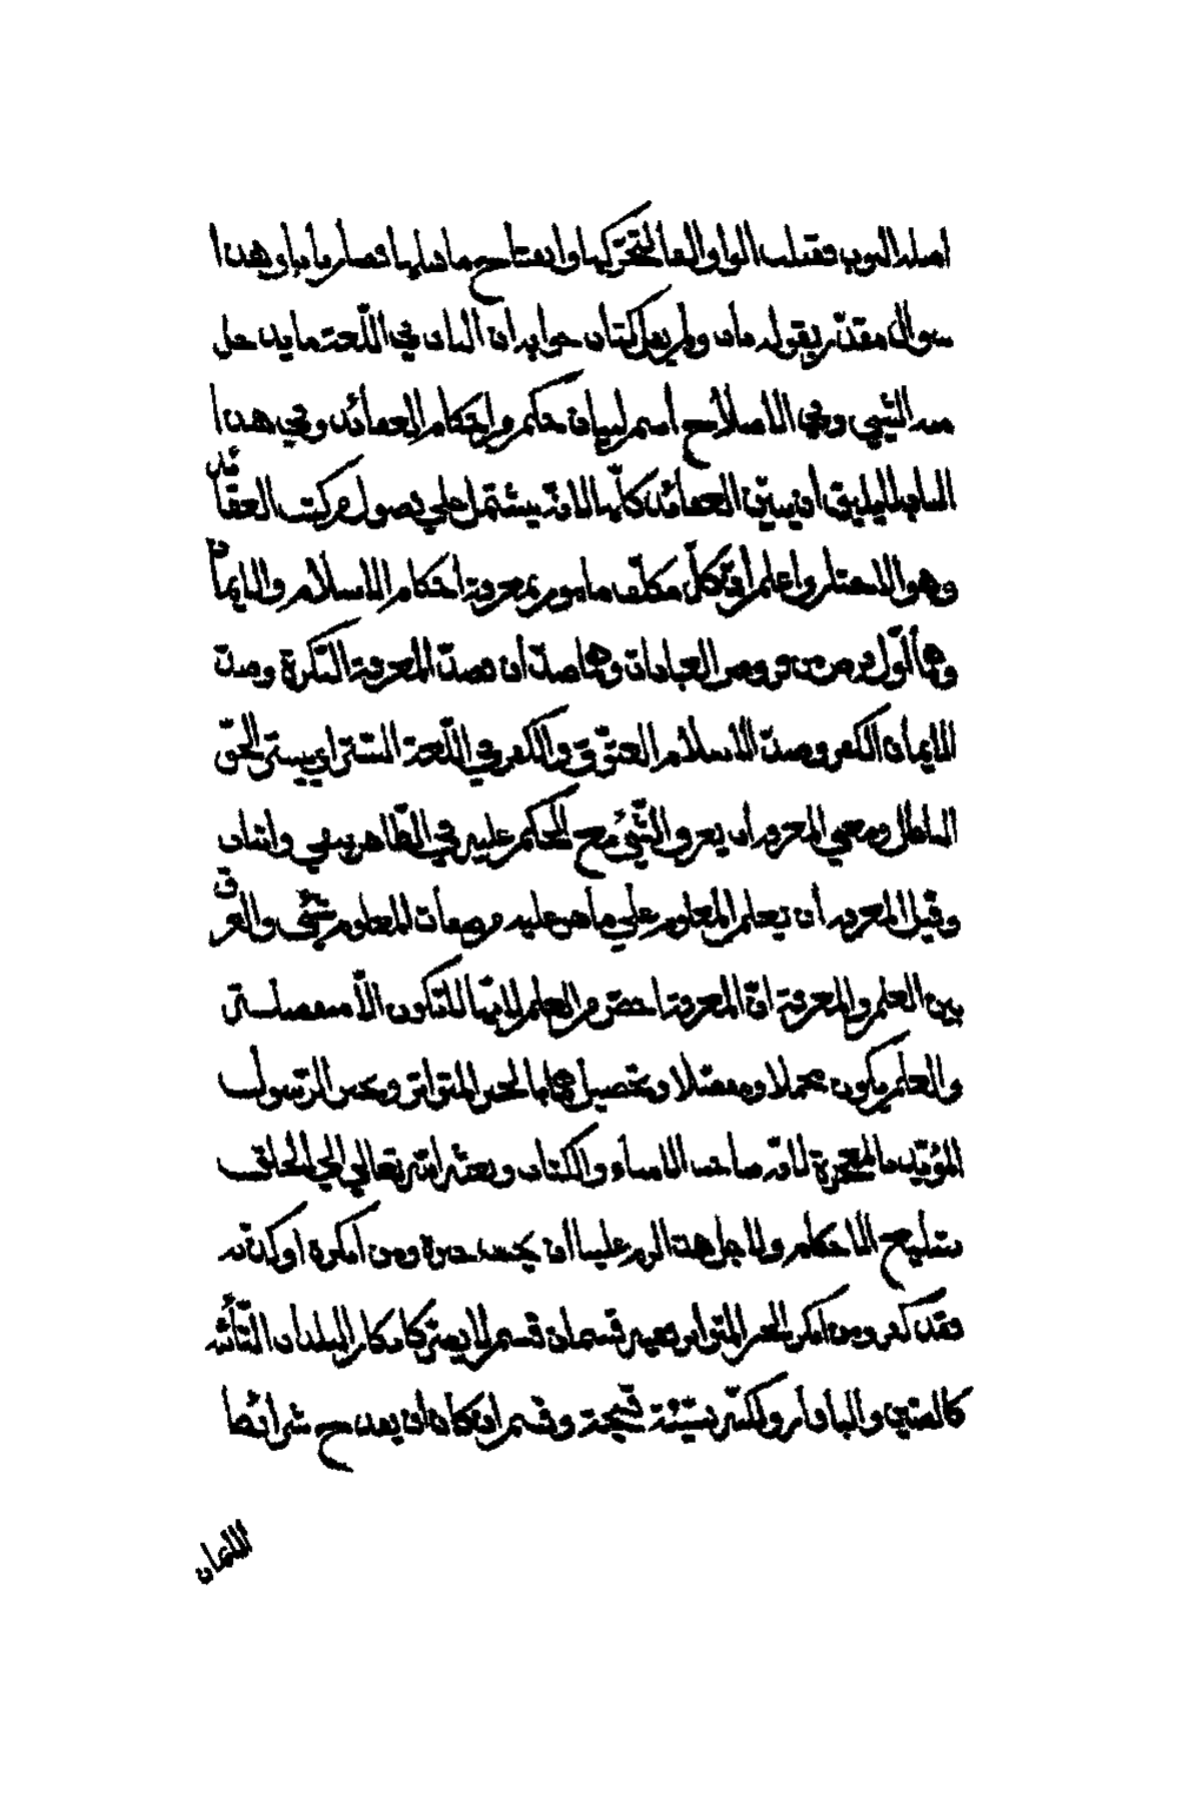 اصله البوب فقلبت الواو الفا لتحركها وانفتاح ما قبلها فصار بابا وهذا
سوال مقدّر بقوله باب ولم يقل كتاب جوابه ان الباب في اللّغة ما يدخل
منه الشيئ وفي الاصلاح اسم لبيان حكم واحكام العقائد وفي هذا
الباب لا يليق ان يبيّن العقائد كلّها لانّه يشتمل علي فصول مركبت العقائد
وهو الاستار واعلم انّ كلّ مكلّف مامور بمعرفة احكام الاسلام والايمان
وهما اوّل فرض من فروض العبادات وهما ضدّان فضدّ المعرفة النكرة وضدّ
الايمان الكفر وضدّ الاسلام العتوّ والكفر في اللّغة السّتر اي يستر الحقّ
الباطل ومعني المعرفة ان يعرف الشّيئ مع الحكم عليه في الظّاهر بنفي واثبات
وقيل المعرفة ان يعلم المعلوم علي ما هو عليه وصفات المعلوم شيئ والفرق
بين العلم والمعرفة انّ المعرفة اخصّ من العلم لانّها لا تكون الّا مفصلة
والعلم يكون مجملا ومفصّلا وتحصيلهما بالخبر المتواتر وبخبر الرّسول
المؤيّد بالمعجزة لانّه صاحب الانباء والكتاب وبعثه الله تعالي الي الخلق
بتبليغ الاحكام ولاجل هذا الزم علينا ان خبره ومن انكره او كذّبه
فقد كفر ومن انكر الخبر المتواتر فهو قسمان قسم لا يضرّ كانكار البلدان النّائية
كالصّين والبا ولكنّه سيّئة قبيحة وقسم ان كان ان يعد مع شرائط
الايمان